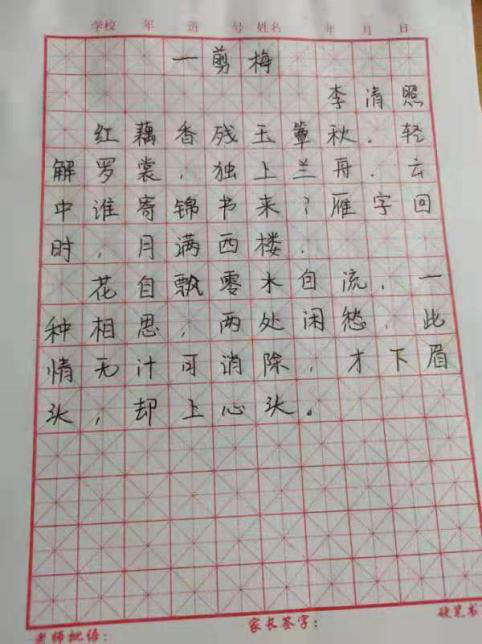 学校 年 班 号 姓名 年 月 日
一剪梅
李清照
红藕香残玉簟秋.轻
解罗裳,独上兰舟.云
中谁寄锦书来?雁字回
时,月满西楼.
花自飘零水自流,一
种相思,两处闲愁.此
情无计可消除,才下眉
头,却上心头。
老师批语: 家长签字: 硬笔书